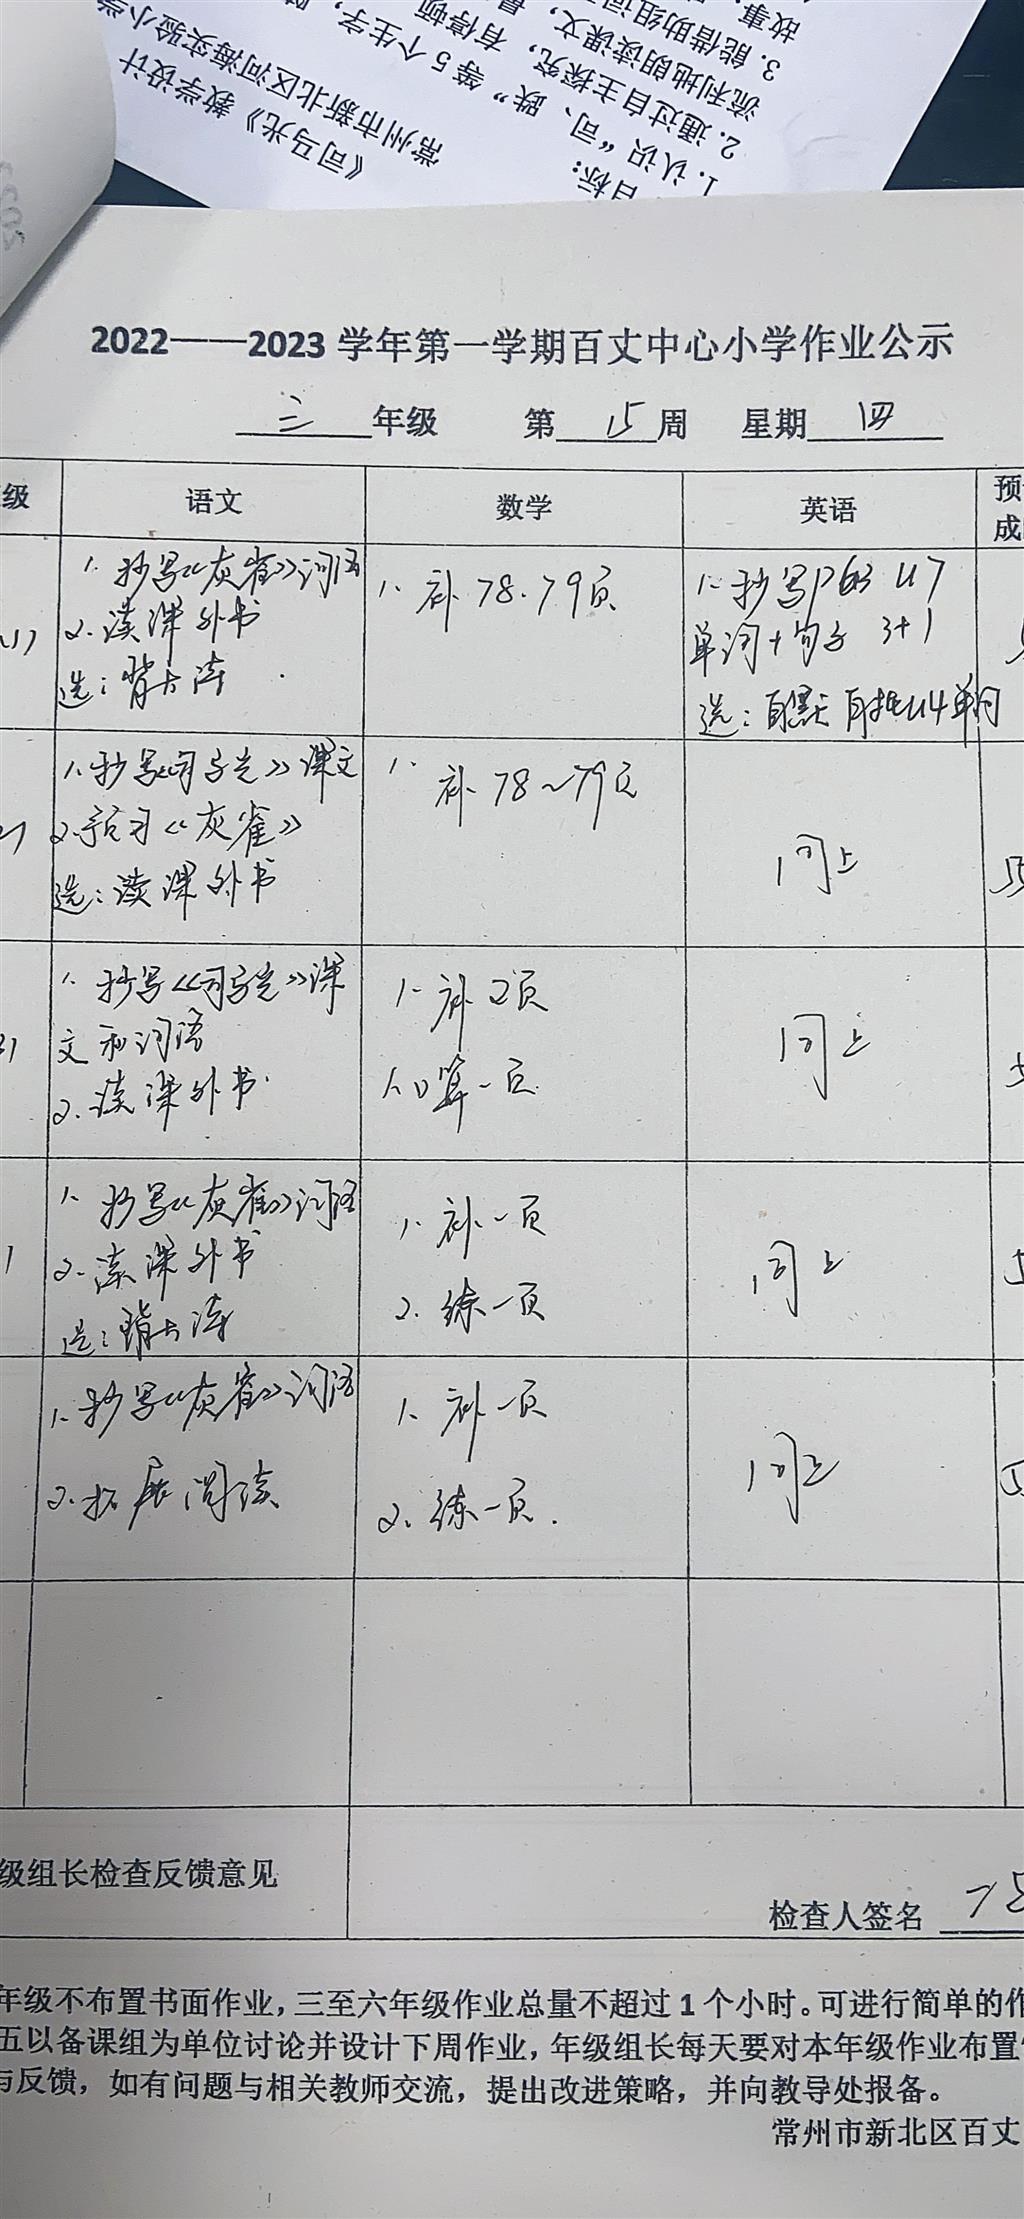 《司马光》教学设计
常州市新北区河海实验小学
目标:
1. 认识“司、跌”等5个生字,
2. 通过自主探究,有停顿
流利地朗读课文,
3. 能借助组词
故事,
2022——2023 学年第一学期百丈中心小学作业公示
三 年级 第 15 周 星期 四
级 语文 数学 英语 预
成
1. 抄写《灰雀》词语
2. 读课外书
选:背大诗
1. 补78.79页
1. 抄写P63 U7
单词+句子 3+1
选:自默 U4单词
1. 抄写《司马光》课文
2. 预习《灰雀》
选:读课外书
1. 补78~79页
同上
1. 抄写《司马光》课
文和词语
2. 读课外书.
1. 补2页
口算一页.
同上
1. 抄写《灰雀》词语
2. 读课外书
选:背大诗
1. 补一页
2. 练一页
同上
1. 抄写《灰雀》词语
2. 拓展阅读
1. 补一页
2. 练一页.
同上
级组长检查反馈意见
检查人签名
年级不布置书面作业,三至六年级作业总量不超过1个小时。可进行简单的作
五以备课组为单位讨论并设计下周作业,年级组长每天要对本年级作业布置
与反馈,如有问题与相关教师交流,提出改进策略,并向教导处报备。
常州市新北区百丈